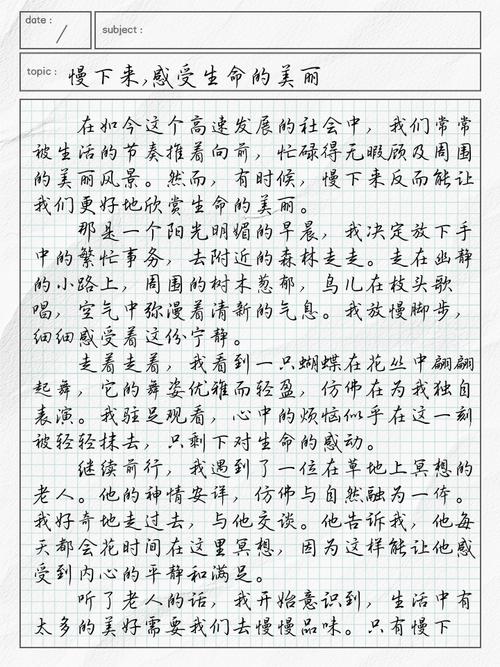 date :
/
subject :
topic : 慢下来,感受生命的美丽
在如今这个高速发展的社会中，我们常常
被生活的节奏推着向前，忙碌得无暇顾及周围
的美丽风景。然而，有时候，慢下来反而能让
我们更好地欣赏生命的美丽。
那是一个阳光明媚的早晨，我决定放下手
中的繁忙事务，去附近的森林走走。走在幽静
的小路上，周围的树木葱郁，鸟儿在枝头歌
唱，空气中弥漫着清新的气息。我放慢脚步，
细细感受着这份宁静。
走着走着，我看到一只蝴蝶在花丛中翩翩
起舞，它的舞姿优雅而轻盈，仿佛在为我独自
表演。我驻足观看，心中的烦恼似乎在这一刻
被轻轻抹去，只剩下对生命的感动。
继续前行，我遇到了一位在草地上冥想的
老人。他的神情安详，仿佛与自然融为一体。
我好奇地走过去，与他交谈。他告诉我，他每
天都会花时间在这里冥想，因为这样能让他感
受到内心的平静和满足。
听了老人的话，我开始意识到，生活中有
太多的美好需要我们去慢慢品味。只有慢下